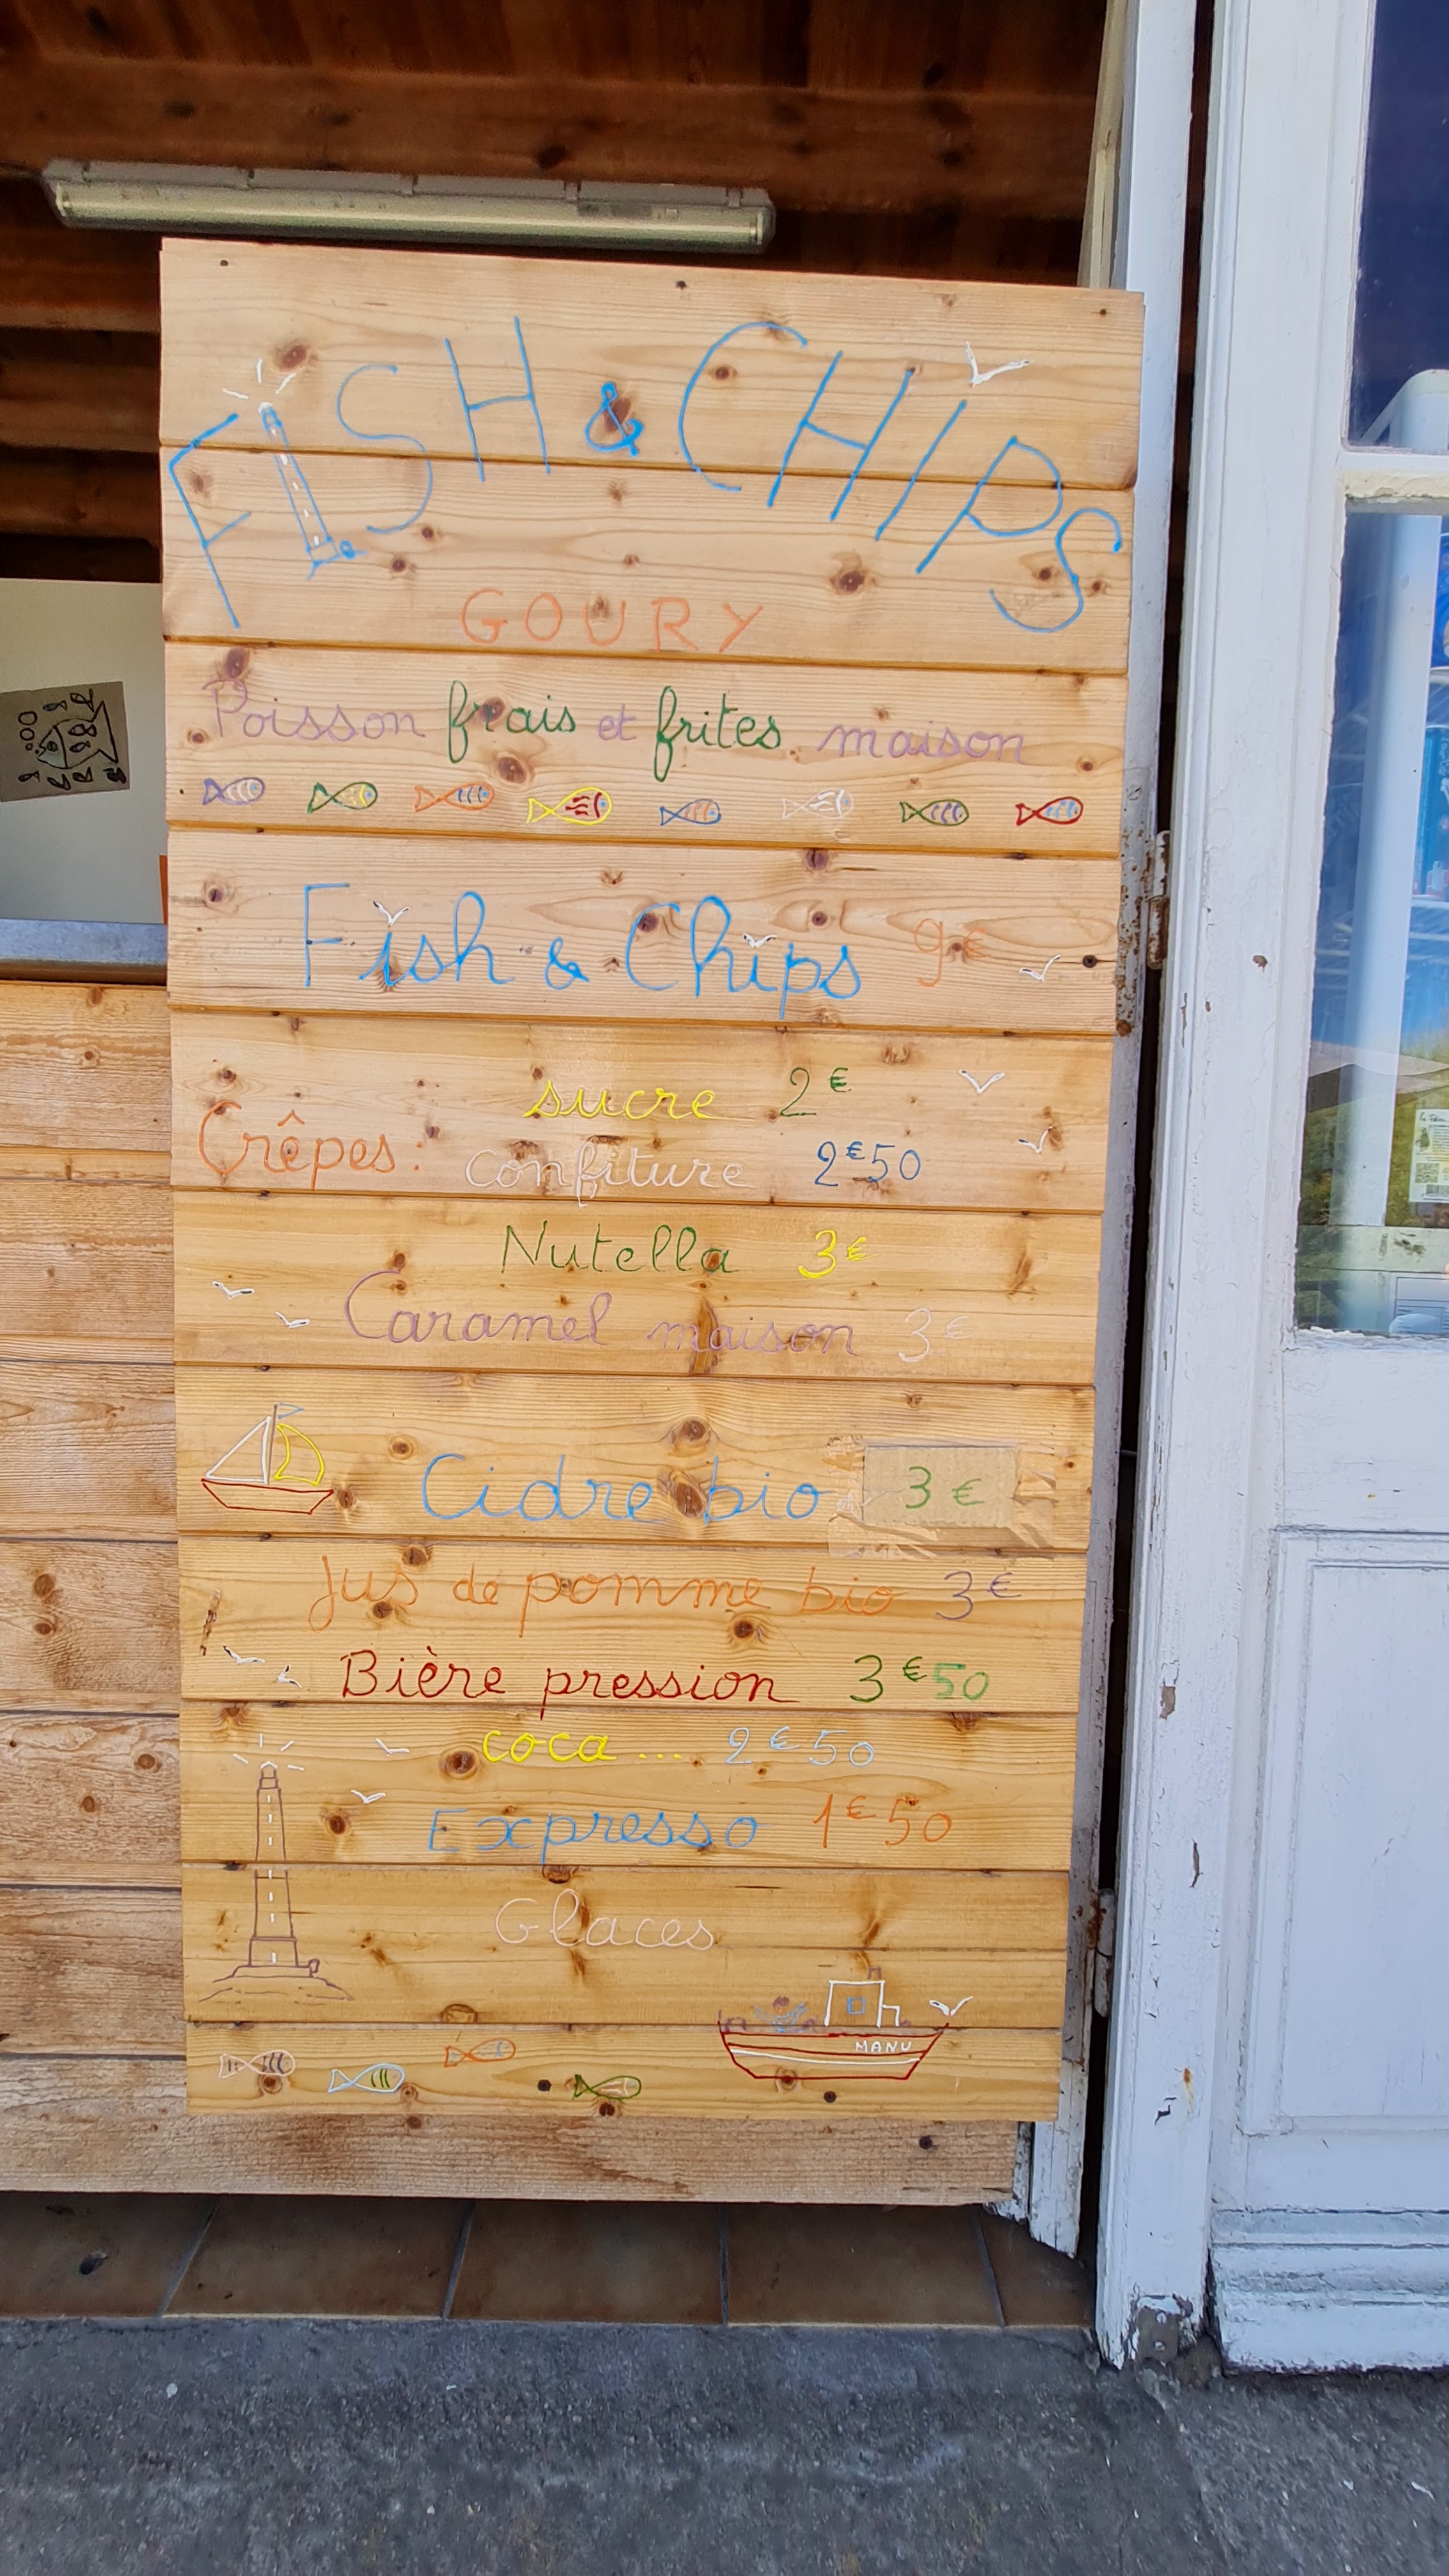 FISH & CHIPS
GOURY
Poisson frais et frites maison
Fish & Chips 9€
sucre 2€
Crêpes: confiture 2€50
Nutella 3€
Caramel maison 3€
Cidre bio 3€
Jus de pomme bio 3€
Bière pression 3€50
coca... 2€50
Expresso 1€50
Glaces
MANU